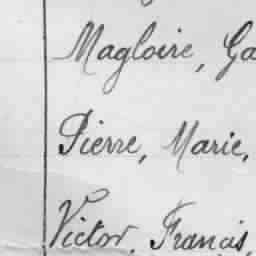 Magloire, Ga
Pierre, Marie,
Victor, Francis,